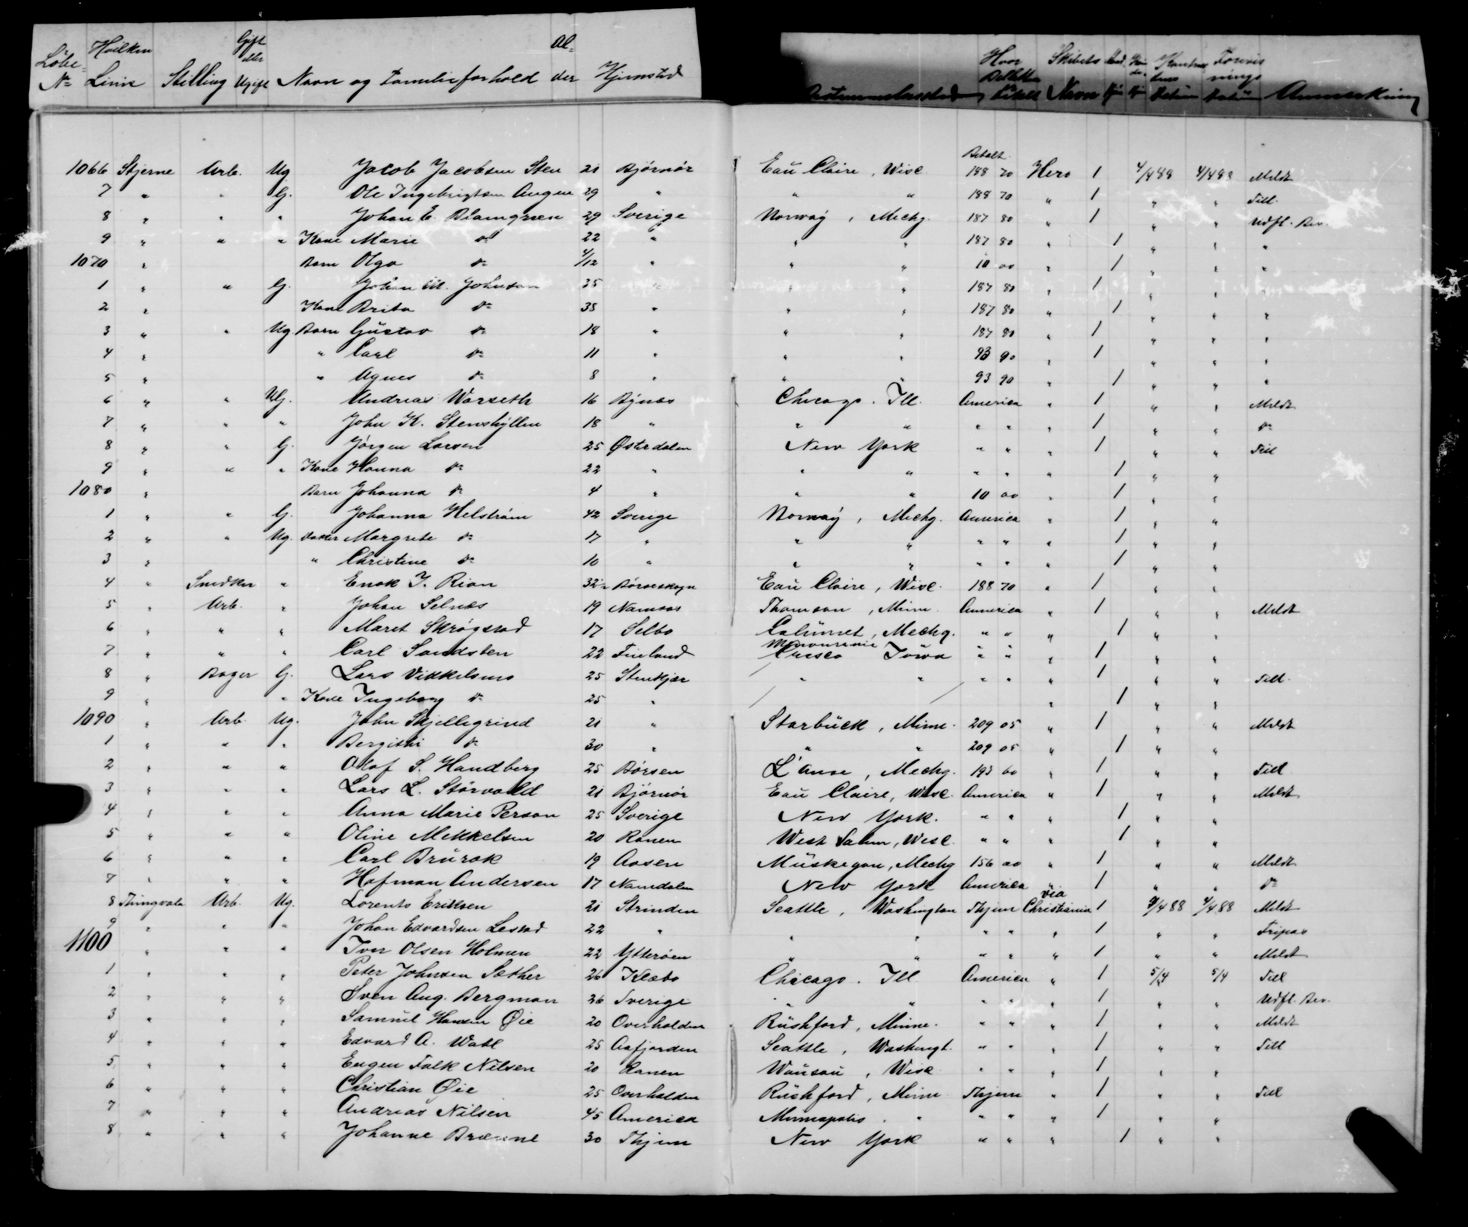 Løbe No Hvilken Linie Stilling Gift eller Ugift Navn og Familieforhold Al-der Hjemsted Hvor Betalt Skibets Navn Anmerkning
1066 Stjerne Arb. Ug Jacob Jacobsen Sten 21 Bjørnør Eau Claire, Wisc. Betalt 188 70 Hero 1 4/4 88 4/4 88 Meldt
7 " " G. Ole Ingebrigtsen Augen 29 " " " 188 70 " 1 " " Till
8 " " " Johan E. Blamgreen 29 Sverige Norway, Mechg. 187 80 " 1 " " Udfl. Bev.
9 " " " Kone Marie do 22 " " " 187 80 " 1 " " "
1070 " Barn Olga do 4/12 " " " 10 00 " 1 " " "
1 " " G. Johan Johnson 35 " " " 187 80 " 1 " " "
2 " Kone Brita do 35 " " " 187 80 " 1 " " "
3 " " Ug Barn Gustav do 18 " " " 187 80 " 1 " " "
4 " " Carl do 11 " " " 93 90 " 1 " " "
5 " " Agnes do 8 " " " 93 90 " 1 " " "
6 " " Ug. Andreas Worseth 16 Bynæs Chicago. Ill. America " 1 " " Meldt
7 " " " John K. Stenshyllen 18 " " " " " " 1 " " do
8 " " G. Jørgen Larsen 25 Østerdalen New York " " " 1 " " Till
9 " " " Kone Hanna do 22 " " " " " " 1 " "
1080 " Barn Johanna do 4 " " " 10 00 " 1 " "
1 " " G. Johanna Helstrøm 42 Sverige Norway, Mechg. America " 1 " "
2 " " Ug. Datter Margrete do 17 " " " " " " 1 " "
3 " " Christine do 10 " " " " " " 1 " "
4 " Snedker " Enok I. Rian 32 Børseskogn Eau Claire, Wisc. 188 70 " 1 " "
5 " Arb. " Johan Selnæs 19 Namsos Thomson, Minn. America " 1 " " Meldt
6 " " " Maret Skrøgstad 17 Selbo Calumet, Mechg. " " " 1 " "
7 " " " Carl Sandsten 22 Finland Cresco Iowa " " " 1 " "
8 " Bager G. Lars Vidkelsmo 25 Stenkjær " " " " " 1 " " Till.
9 " " Kone Ingeborg do 25 " " 1 " "
1090 " Arb Ug. John Skjellegrind 21 " Starbuck, Minn. 209 05 " 1 " " Meldt
1 " " " Bergitti do 30 " " " 209 05 " 1 " "
2 " " " Olaf S. Handberg 25 Børsen L'anse, Mechg. 193 60 " 1 " " Till
3 " " " Lars L. Størvold 21 Bjørnør Eau Claire, Wisc. America " 1 " " Meldt
4 " " " Anna Marie Person 25 Sverige New York. " " " 1 " " "
5 " " " Oline Mekkelsen 20 Ranen West Salem, Wisc. " " " 1 " "
6 " " " Carl Brurok 19 Aasen Muskegon, Mechg 156 00 " 1 " " Meldt
7 " " " Hofman Andersen 17 Namdalen New York America " 1 " " do
8 Thingvala Arb. Ug. Lorents Eriksen 21 Strinden Seattle, Washington Thjem via Christiania 1 4/4 88 4/4 88 Meldt
9 " " " Johan Edvardsen Lestad 22 " " " " " " 1 " " Fripas
1100 " " " Iver Olsen Holmen 22 Ytterøen " " " " " 1 " " Meldt
1 " " " Peter Johnsen Sæther 26 Klæbo Chicago. Ill America " 1 5/4 5/4 Till
2 " " " Sven Aug. Bergman 26 Sverige " " " " " 1 " " Udfl. Bev.
3 " " " Samuel Hansen Øie 20 Overhalden Rushford, Minne. " " " 1 " " Meldt
4 " " " Edvard A. Wahl 25 Aafjorden Seattle, Washingt. " " " 1 " " Till
5 " " " Eugen Falk Nilsen 20 Ranen Wausau, Wisc " " " 1 " "
6 " " " Christian Øie 25 Overhalden Rushford, Minne Thjem " 1 " " Till
7 " " " Andreas Nilsen 45 America Minneapolis. " " " " 1 " "
8 " " " Johanne Brænne 30 Thjem New York " " " 1 " "